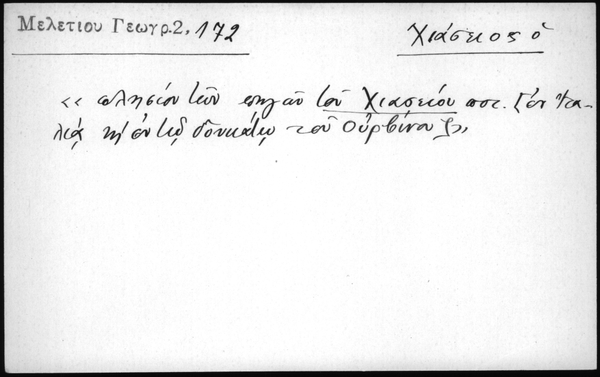 Μελετίου Γεωγρ. 2, 172
Χιάσειος ὁ
«πλησίον τῶν πηγῶν τοῦ Χιασείου ποτ. [ἐν Ἰτα-
λίᾳ κ' ἐν τῷ δουκάτῳ τοῦ Οὐρβίνου]»